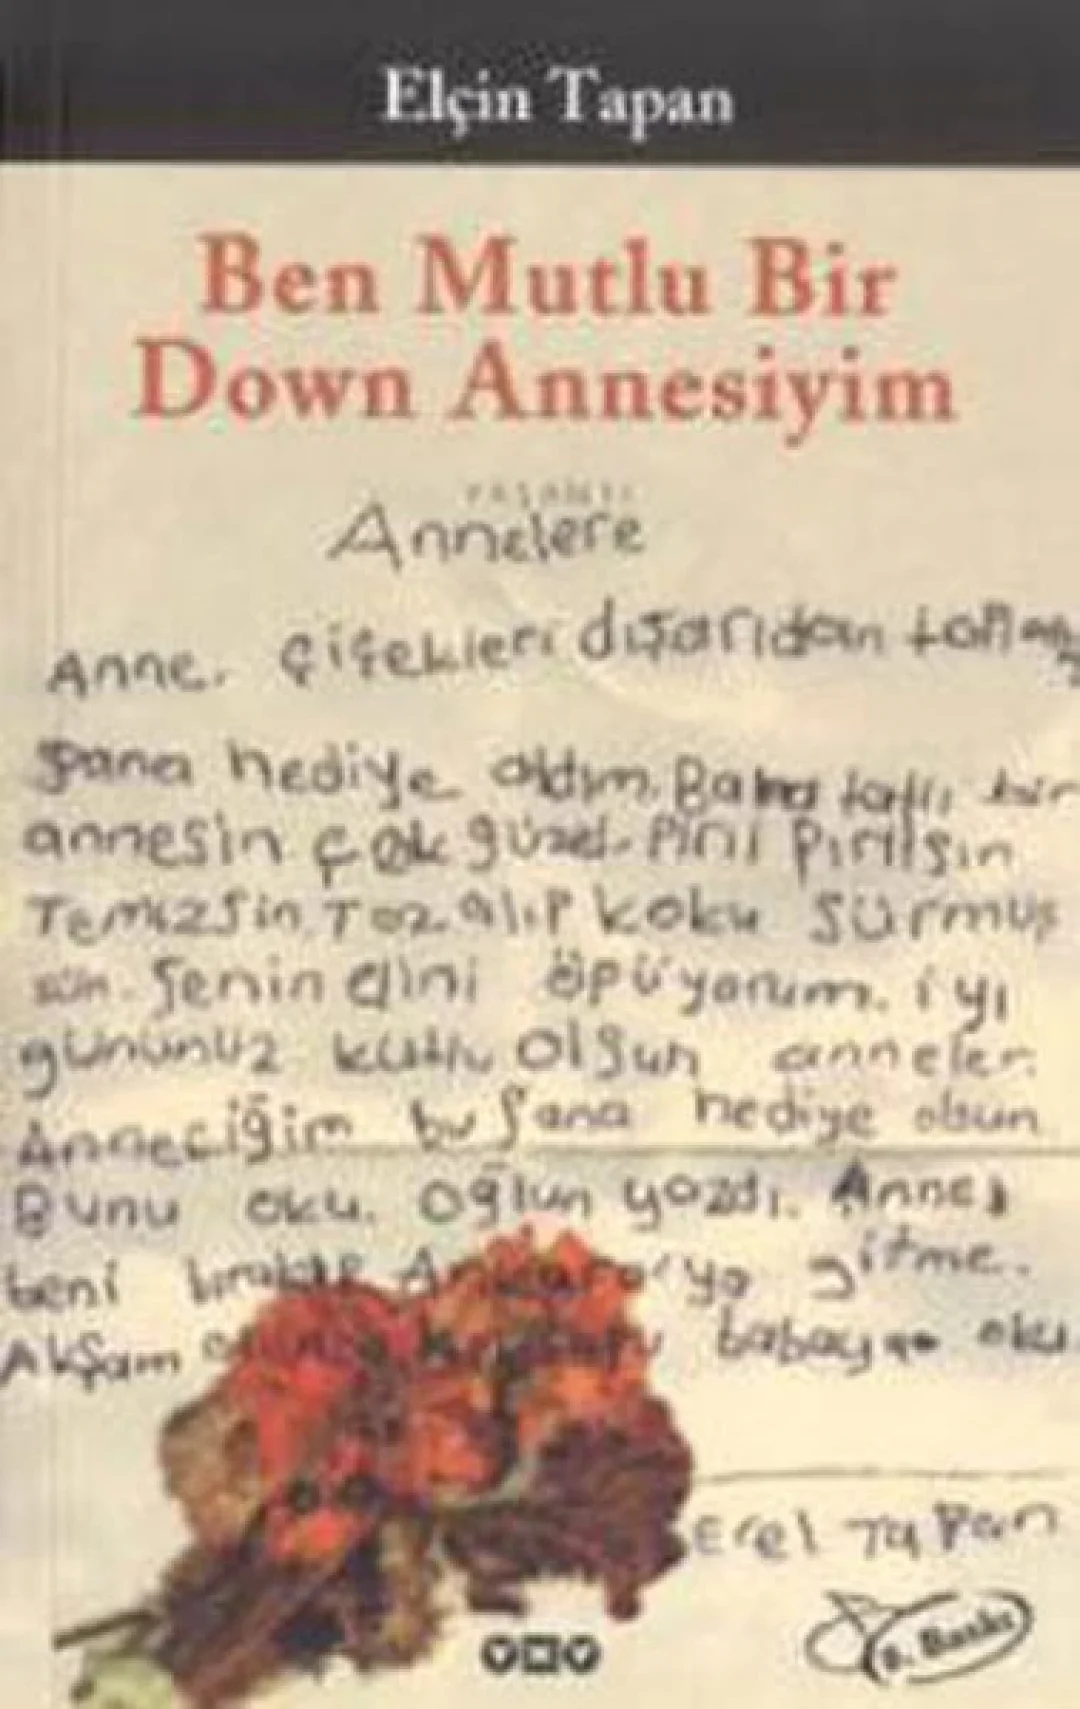 Elçin Tapan
Ben Mutlu Bir
Down Annesiyim
YAŞANTI
Annelere
Anne. çiçekleri dışarıdan
hediye aldım. tatlı bir
annesin çok güzel. Pırıl Pırılsın
Temizsin. Toz alıp koku sürmüş
sün. Senin elini öpüyorum. iyi
gününüz kutlu olsun anneler.
Anneciğim bu sana hediye olsun
Bunu oku. Oğlun yazdı. Anne
beni bırakıp Ankara'ya gitme.
Akşam babaya oku.
Erel Tapan
Baskı